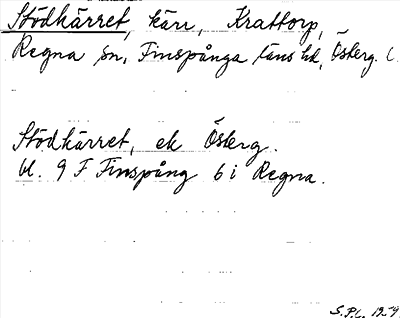 Stödkärret, kärr, Krattorp,
Regna sn, Finspånga läns hd, Österg. l.
Stödkärret, ek Österg.
bl. 9 F Finspång 6 i Regna.